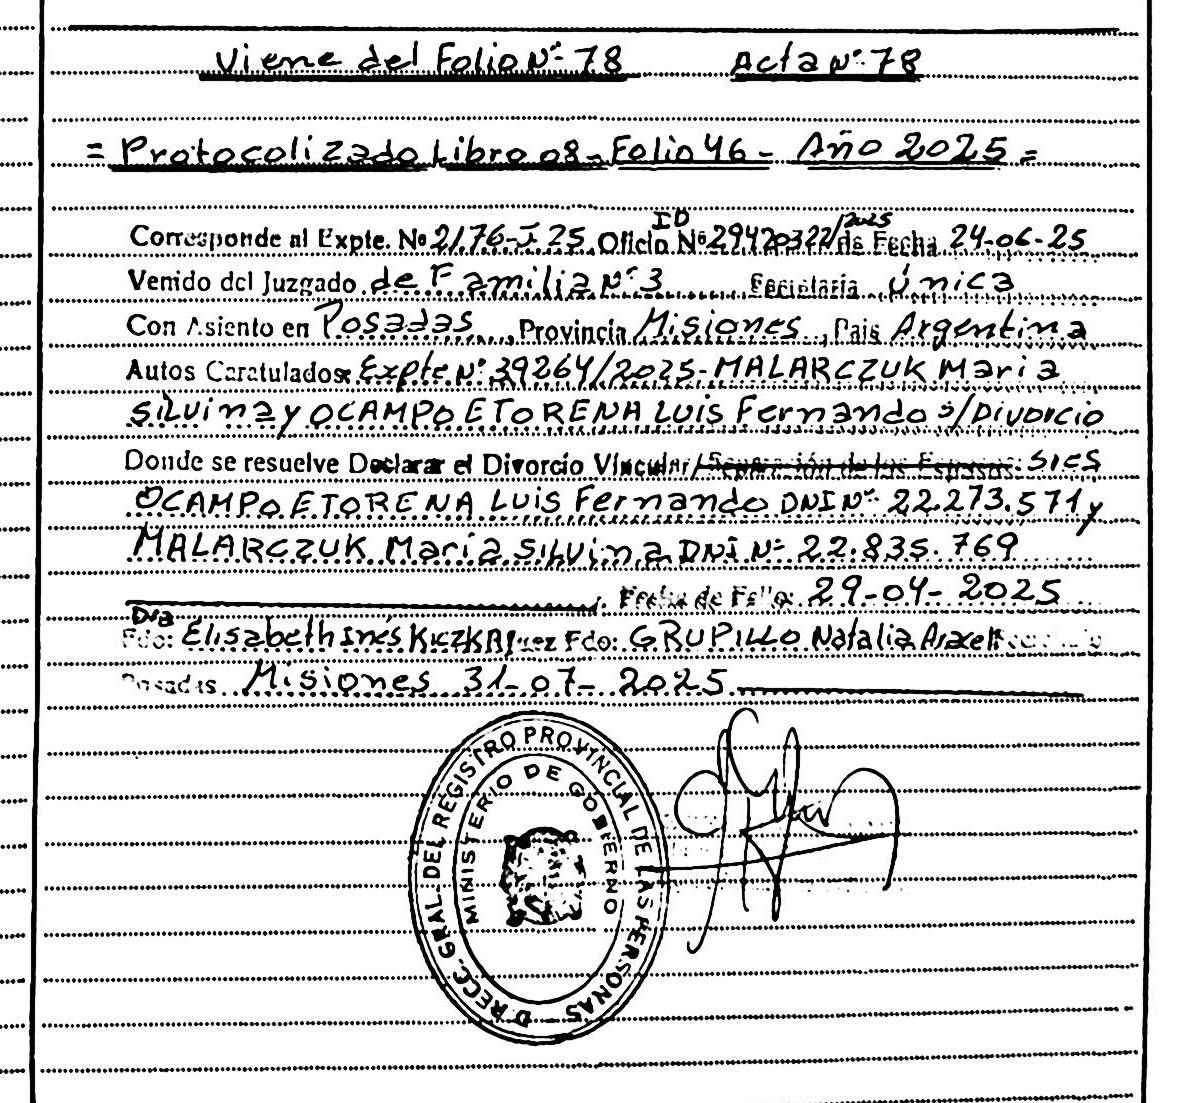 Viene del Folio Nº 78 Acta Nº 78
= Protocolizado Libro 08 - Folio 46 - Año 2025 =
ID /2025
Corresponde al Expte. Nº 2176-J-25 Oficio Nº 29420322 de Fecha 24-06-25
Venido del Juzgado de Familia Nº 3 Secretaría Única
Con Asiento en Posadas, Provincia Misiones, Pais Argentina
Autos Caratulados: Expte Nº 39264/2025 - MALARCZUK Maria
Silvina y OCAMPO ETORENA Luis Fernando s/Divorcio
Donde se resuelve Declarar el Divorcio Vincular/Separación de los Esposos: SRES
OCAMPO ETORENA Luis Fernando DNI Nº 22.273.571 y
MALARCZUK Maria Silvina DNI Nº 22.835.769
Fecha de Fallo: 29-04-2025
Dra
Fdo: Elisabeth Inés KICZKA Juez Fdo: GRUPILLO Natalia Araceli
Posadas Misiones 31-07-2025
DIRECC. GRAL. DEL REGISTRO PROVINCIAL DE LAS PERSONAS
MINISTERIO DE GOBIERNO